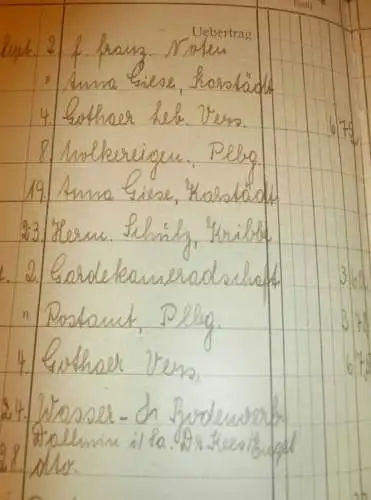 Uebertrag
Sept. 2. f. franz. Noten
" Anna Giese, Karstädt
4. Gothaer Leb. Vers. 6 79
8. Molkereigen., Plbg.
19. Anna Giese, Karstädt
23. Herm. Schulz, Kribbe
2. Gardekameradschaft 3
" Postamt, Plbg. 3
4. Gothaer Vers. 6
24. Wasser- & Bodenverb.
Dallmin
28. dto.